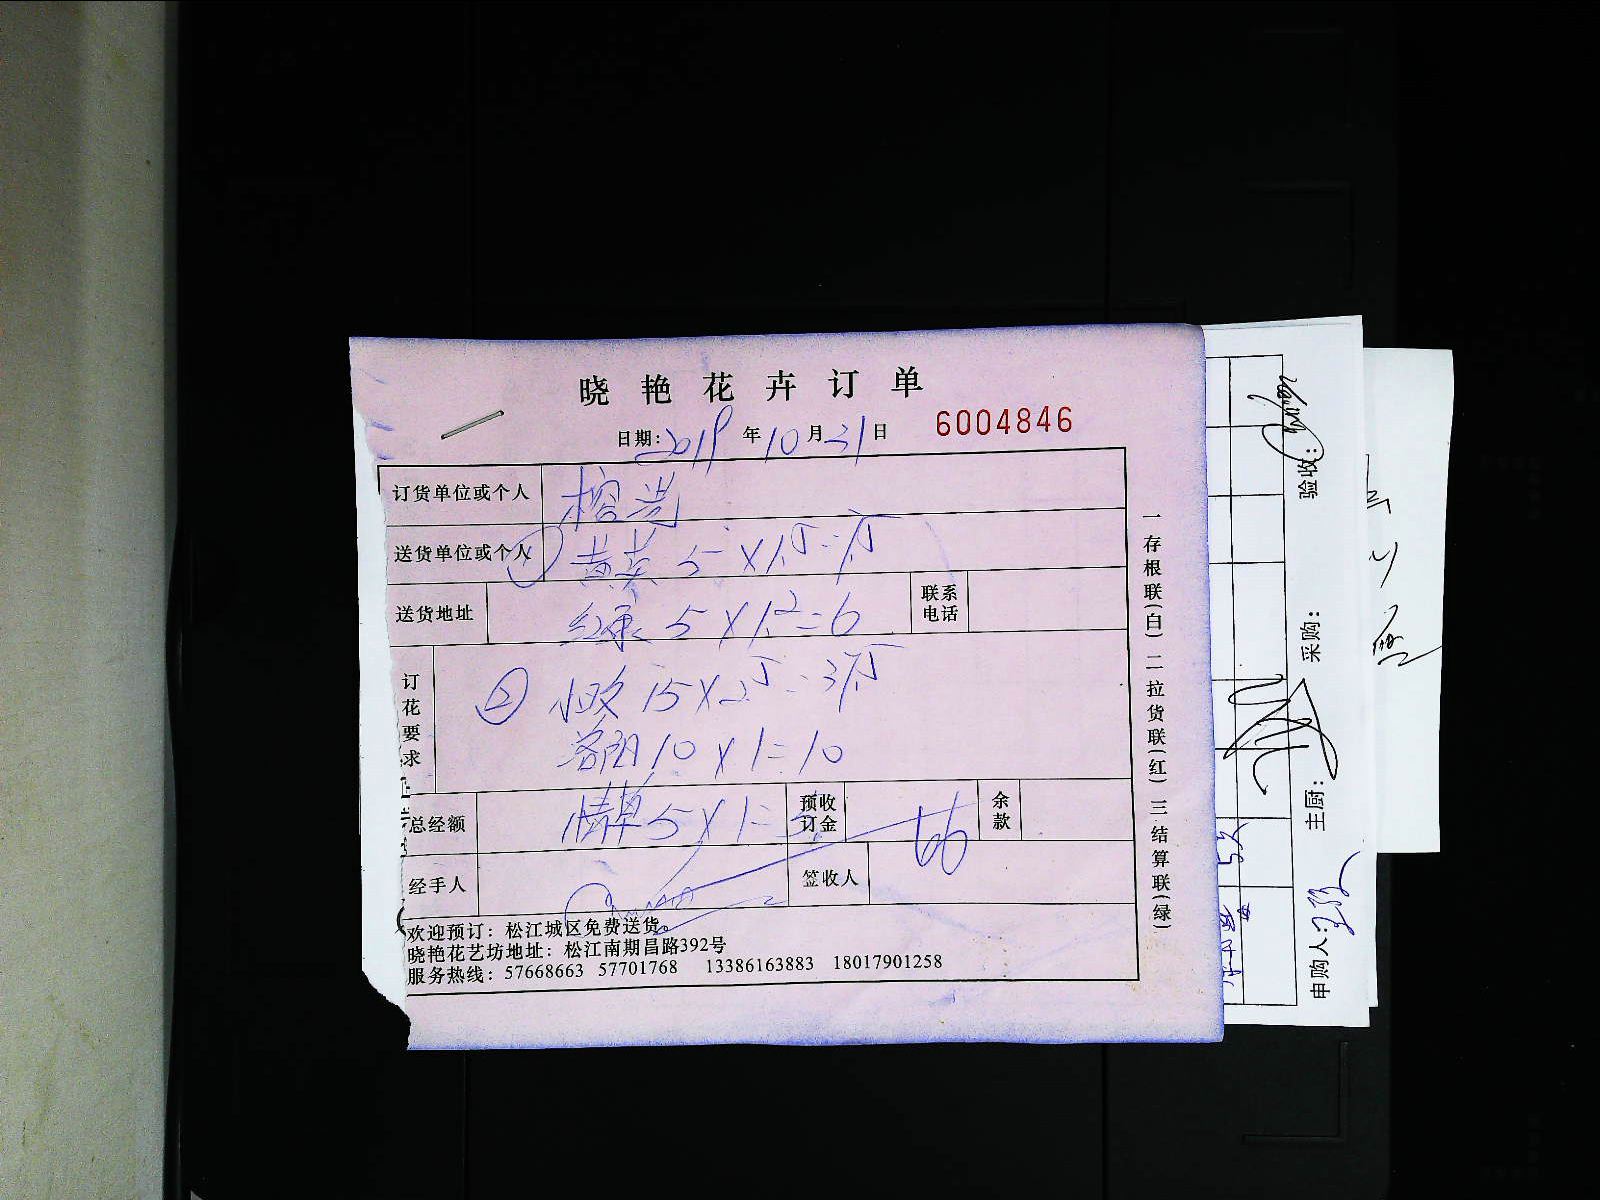 晓艳花卉订单
日期: 2019年10月31日 6004846
订货单位或个人 榕港
送货单位或个人 ① 黄英 5 X 1.5 = 7.5
送货地址 红康 5 X 1.2 = 6 联系电话
订花要求 ② 小玫 15 X 2.5 = 37.5
洛阳 10 X 1 = 10
总经额 情草 5 X 1 = 5 预收订金 66 余款
经手人 签收人
欢迎预订: 松江城区免费送货。
晓艳花艺坊地址: 松江南期昌路392号
服务热线: 57668663 57701768 13386163883 18017901258
一存根联(白) 二拉货联(红) 三结算联(绿)
申购人: 主厨: 采购: 验收: